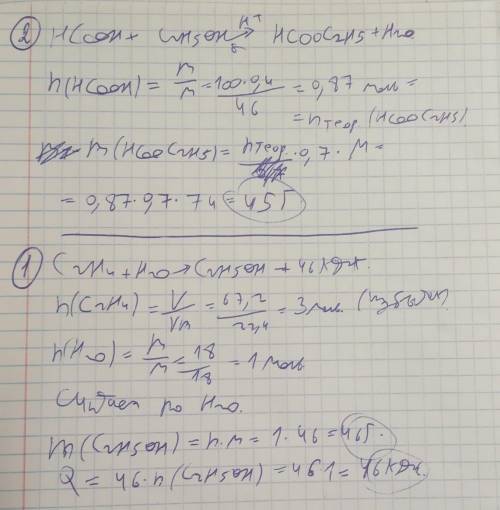 2 HCOOH + C2H5OH H+ t → HCOOC2H5 + H2O
n(HCOOH) = m/M = 100·0,4/46 = 0,87 моль =
= nтеор (HCOOC2H5)
m(HCOOC2H5) = nтеор · 0,7 · M =
= 0,87·97·74 = 45г
1 C2H4 + H2O → C2H5OH + 46кДж.
n(C2H4) = V/Vm = 67,2/22,4 = 3моль (избыток)
n(H2O) = m/M = 18/18 = 1 моль
Считаем по H2O.
m(C2H5OH) = n·M = 1·46 = 46г.
Q = 46·n(C2H5OH) = 46·1 = 46кДж.